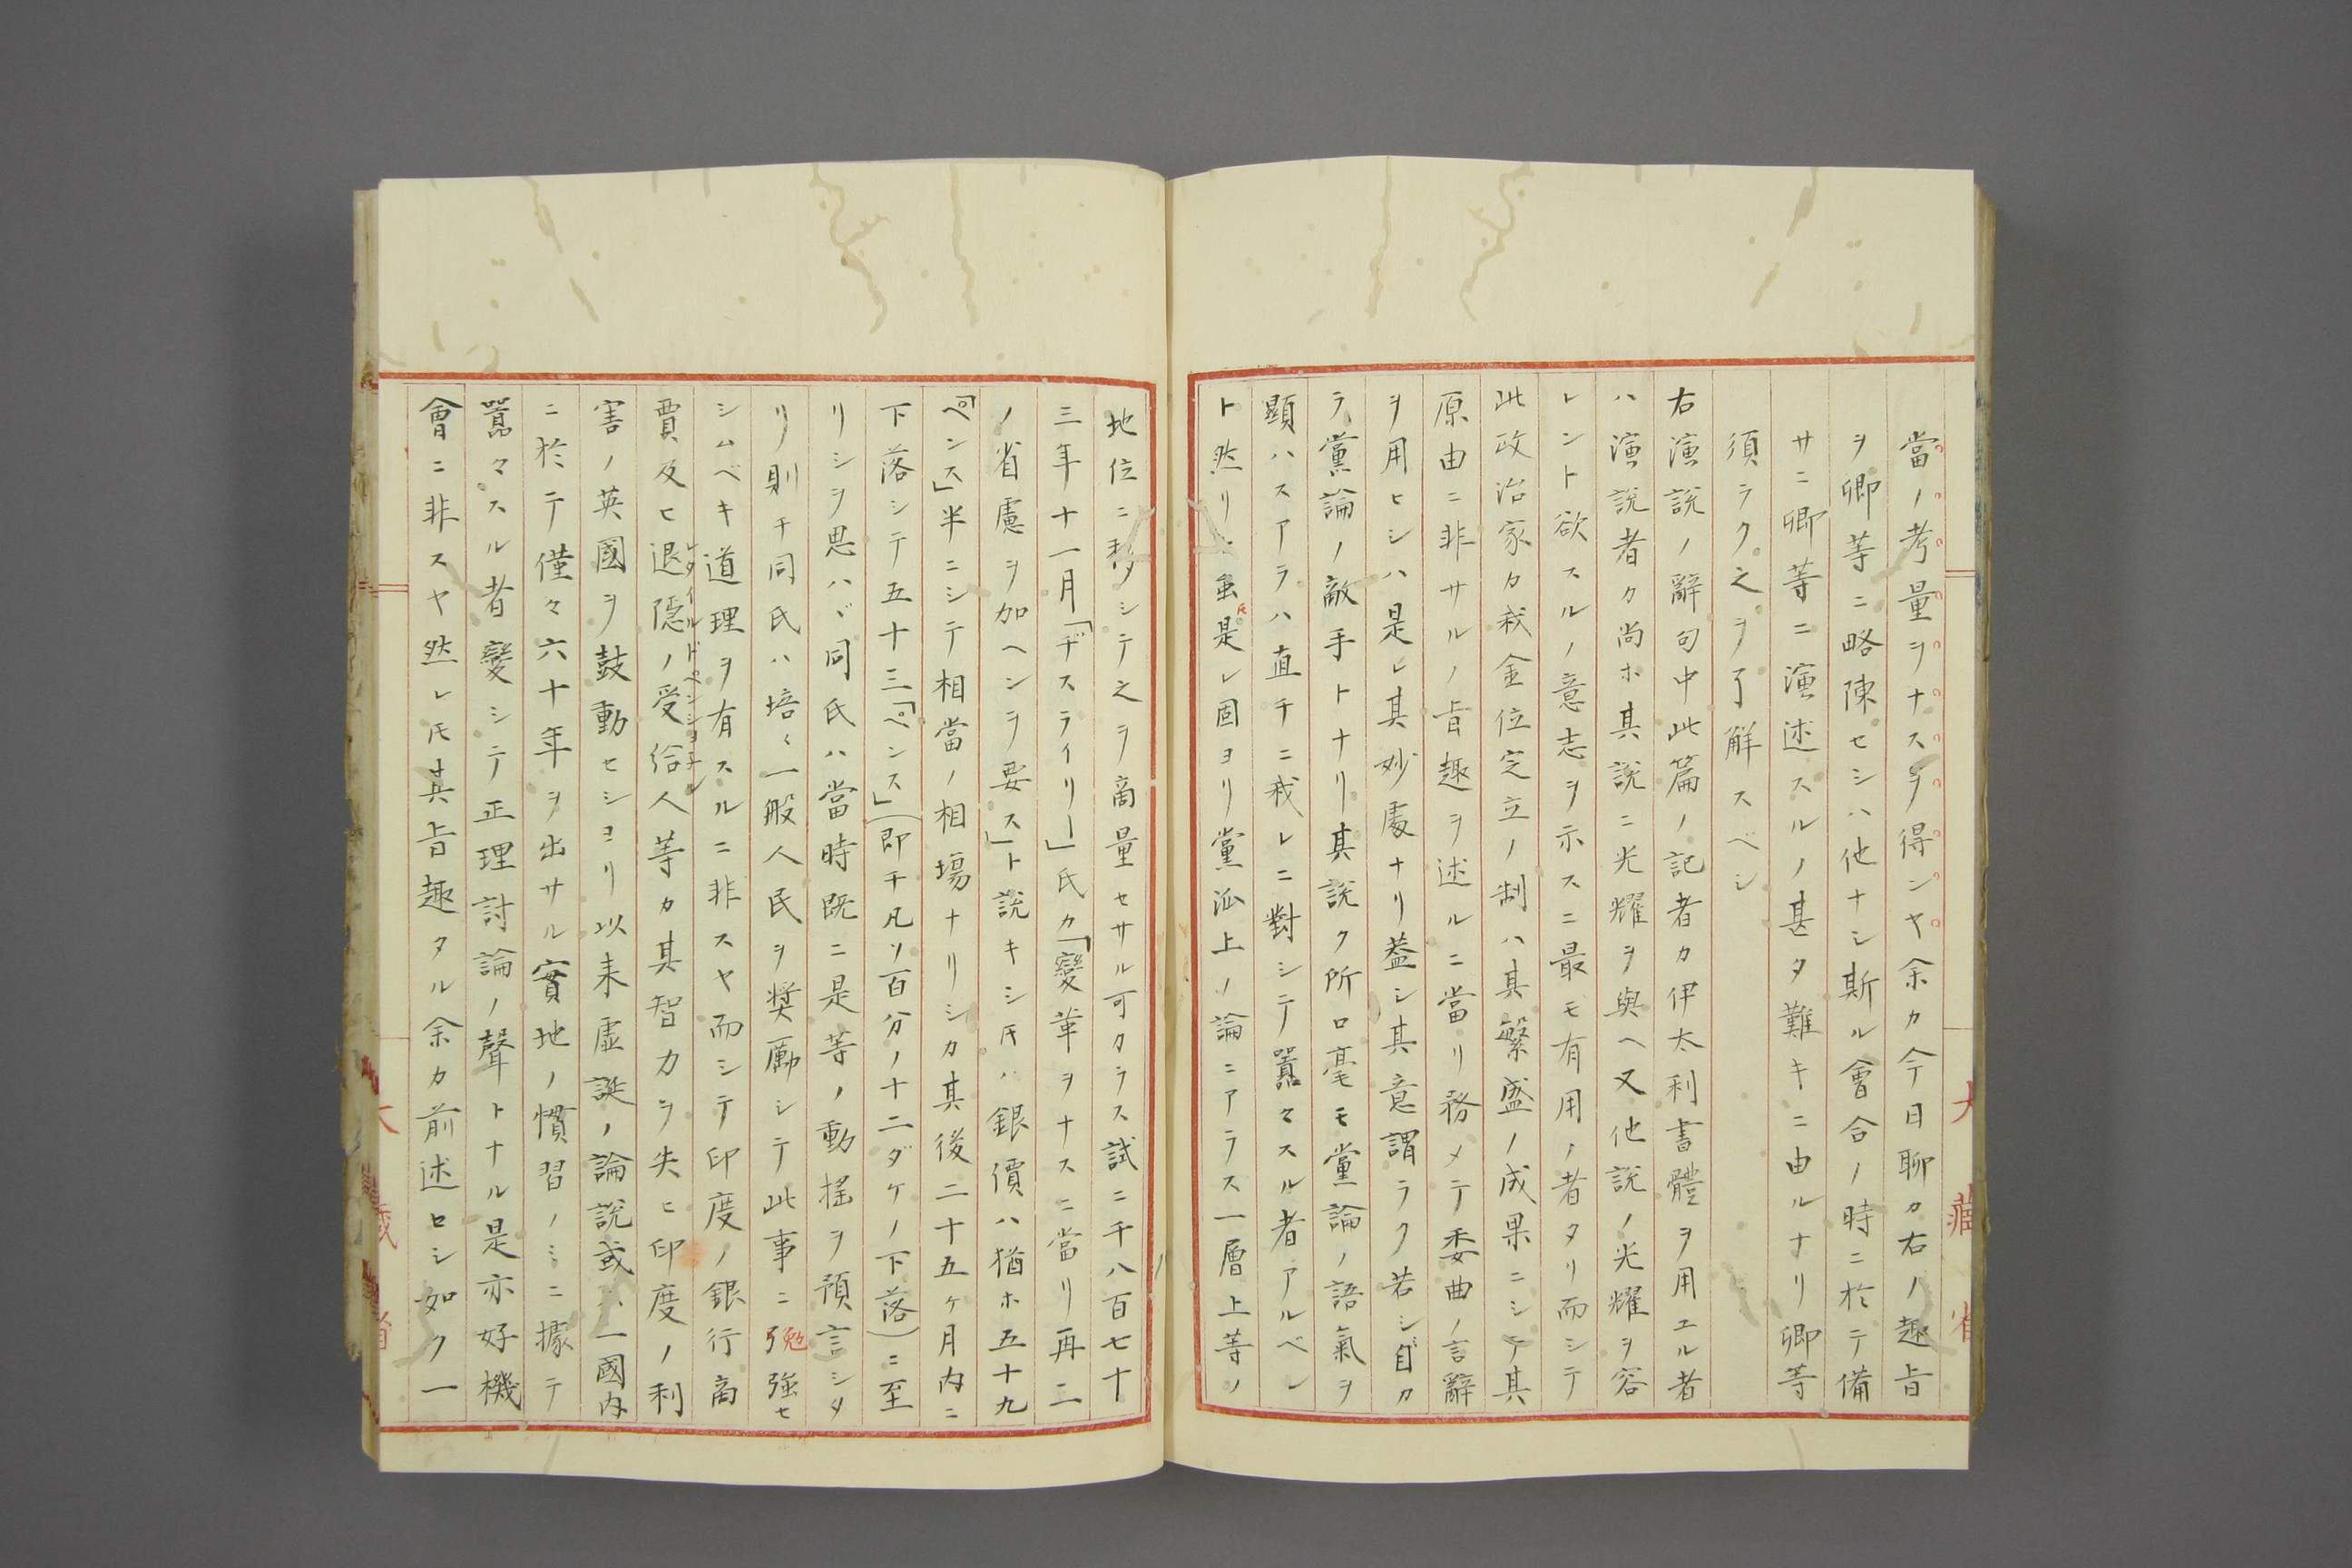 當ノ考量ヲナスヲ得ンヤ余カ今日聊カ右ノ趣旨
ヲ卿等ニ略陳セシハ他ナシ斯ル會合ノ時ニ於テ備
サニ卿等ニ演述スルノ甚タ難キニ由ルナリ卿等
須ラク之ヲ了解スベシ
右演説ノ辭句中此篇ノ記者カ伊太利書體ヲ用エル者
ハ演説者ク尚ホ其説ニ光耀ヲ與ヘ又他説ノ光耀ヲ容
レント欲スルノ意志ヲ示スニ最モ有用ノ者タリ而シテ
此政治家カ我金位定立ノ制ハ其繁盛ノ成果ニシテ其
原由ニ非サルノ旨趣ヲ述ルニ當リ務メテ委曲ノ言辭
ヲ用ヒシハ是レ其妙處ナリ葢シ其意謂ラク若シ自カ
ラ黨論ノ敵手トナリ其説ク所ロ毫モ黨論ノ語氣ヲ
顕ハスアラハ直チニ我レニ對シテ囂々スル者アルベシ
ト然リト虽𪜈是レ固ヨリ黨派上ノ論ニアラス一層上等ノ
地位ニ移シテ之ヲ商量セサル可カラス試ニ千八百七十
三年十一月「ヂスライリー」氏カ「變革ヲナスニ當リ再二
ノ省慮ヲ加ヘンヲ要ス」ト説キシ𪜈ハ銀價ハ猶ホ五十九
「ペンス」半ニシテ相當ノ相塲ナリシカ其後二十五ヶ月内ニ
下落シテ五十三「ペンス」(即チ凡ソ百分ノ十二ダケノ下落)ニ至
リシヲ思ハヾ同氏ハ當時既ニ是等ノ動揺ヲ預言シタ
リ則チ同氏ハ培〻一般人民ヲ奬勵シテ此事ニ勉強セ
シムベキ道理ヲ有スルニ非スヤ而シテ印度ノ銀行商
賈及ヒ退隠ノ受給人等カ其智力ヲ失ヒ印度ノ利
レタイルドペンショナル
害ノ英國ヲ鼓動セシヨリ以来虚誕ノ論説或ハ一國内
ニ於テ僅々六十年ヲ出サル實地ノ慣習ノミニ據テ
囂々スル者變シテ正理討論ノ聲トナル是亦好機
會ニ非スヤ然レ𪜈其旨趣タル余カ前述セシ如ク一
大藏省